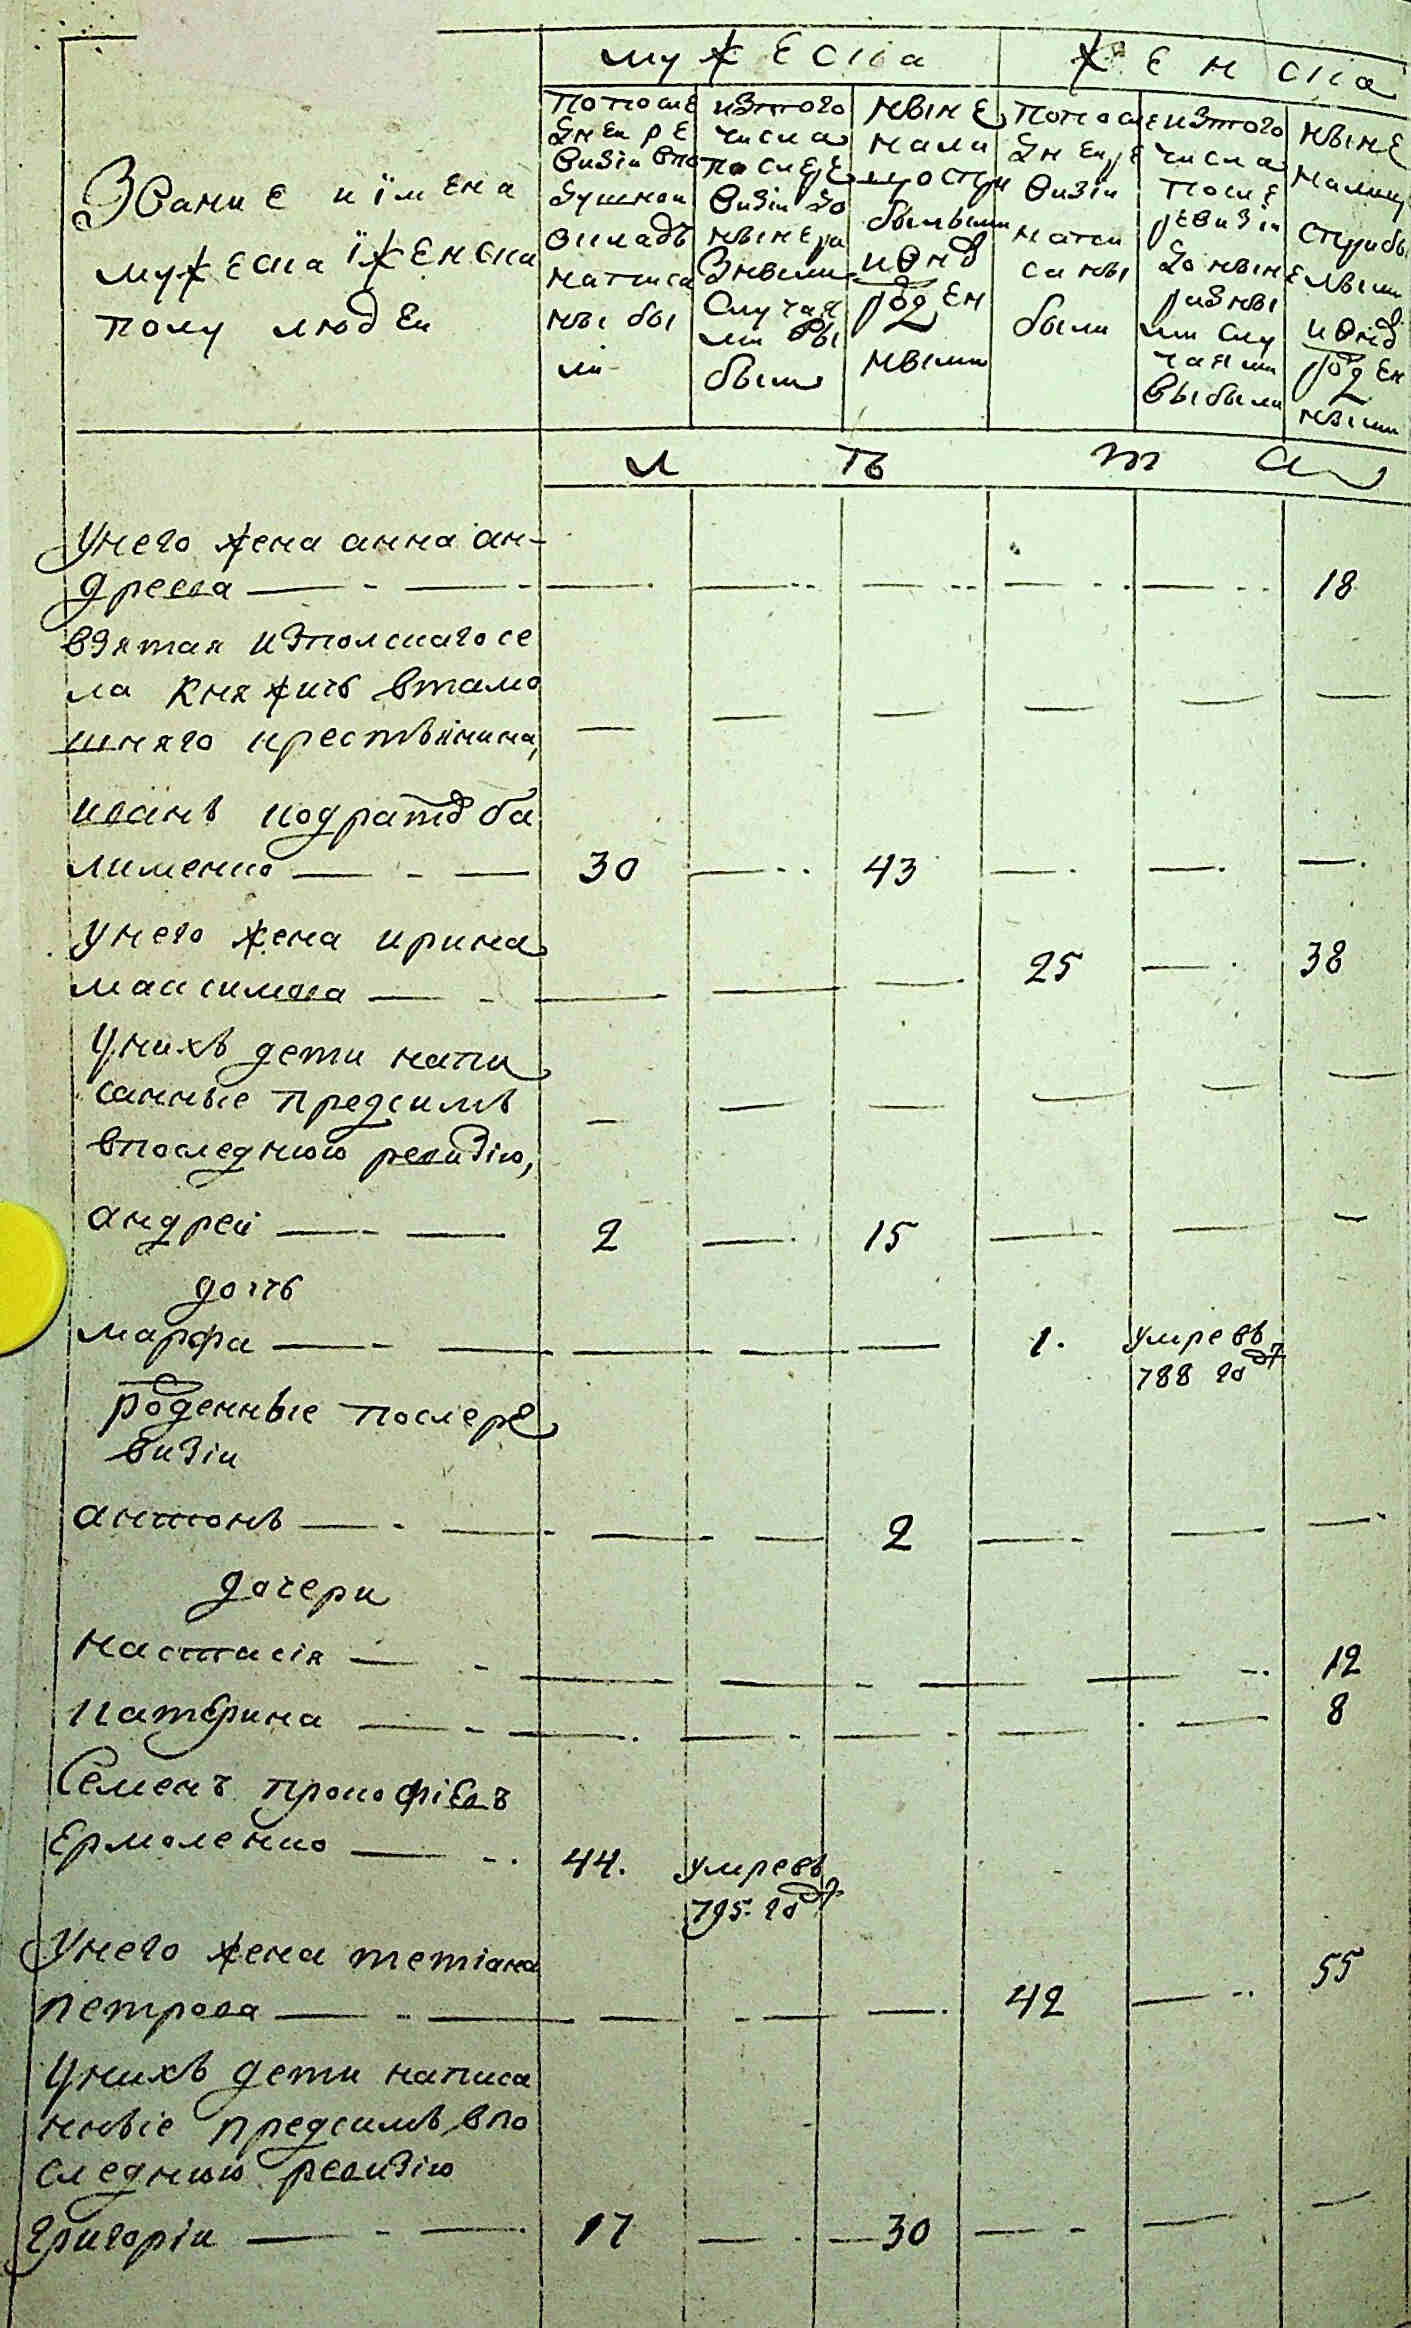 мужеска
женска
Звание и їмена
мужеска їженска
полу людеи
попосле
днеи ре
визіи впо
душнои
окладъ
написа
ны бы
ли
изтого
числа
послере
визіи до
ныне ра
зными
случая
ми вы
были
ныне
нали
цо стри
былыми
и внов
рожден
ными
попосле
днеи ре
визіи
напи
саны
были
изтого
числа
после
ревизіи
до нын
разны
ми слу
чаями
выбыли
ныне
налицо
стрибы
елыми
и внов
рожден
ными
л ѣ т а
Унего жена анна ан-
дреева 18
взятая изполскаго се
ла Княжичъ втамо
шняго крестьянина,
иванъ кодратов ба
лименко 30 43
унего жена ирина
максимова 25 38
Унихъ дети напи
санные предсимъ
впоследнюю ревизію,
андреи 2 15
дочь
марфа 1. умре въ
788 году
рожденные послере
визіи
антонъ 2
дочери
настасія 12
катерина 8
Семенъ прокофіевъ
Ермоленко 44. умре въ
795 году
Унего жена тетіана
петрова 42 55
Унихъ дети написа
нные предсимъ впо
следнюю ревизію
григоріи 17 30